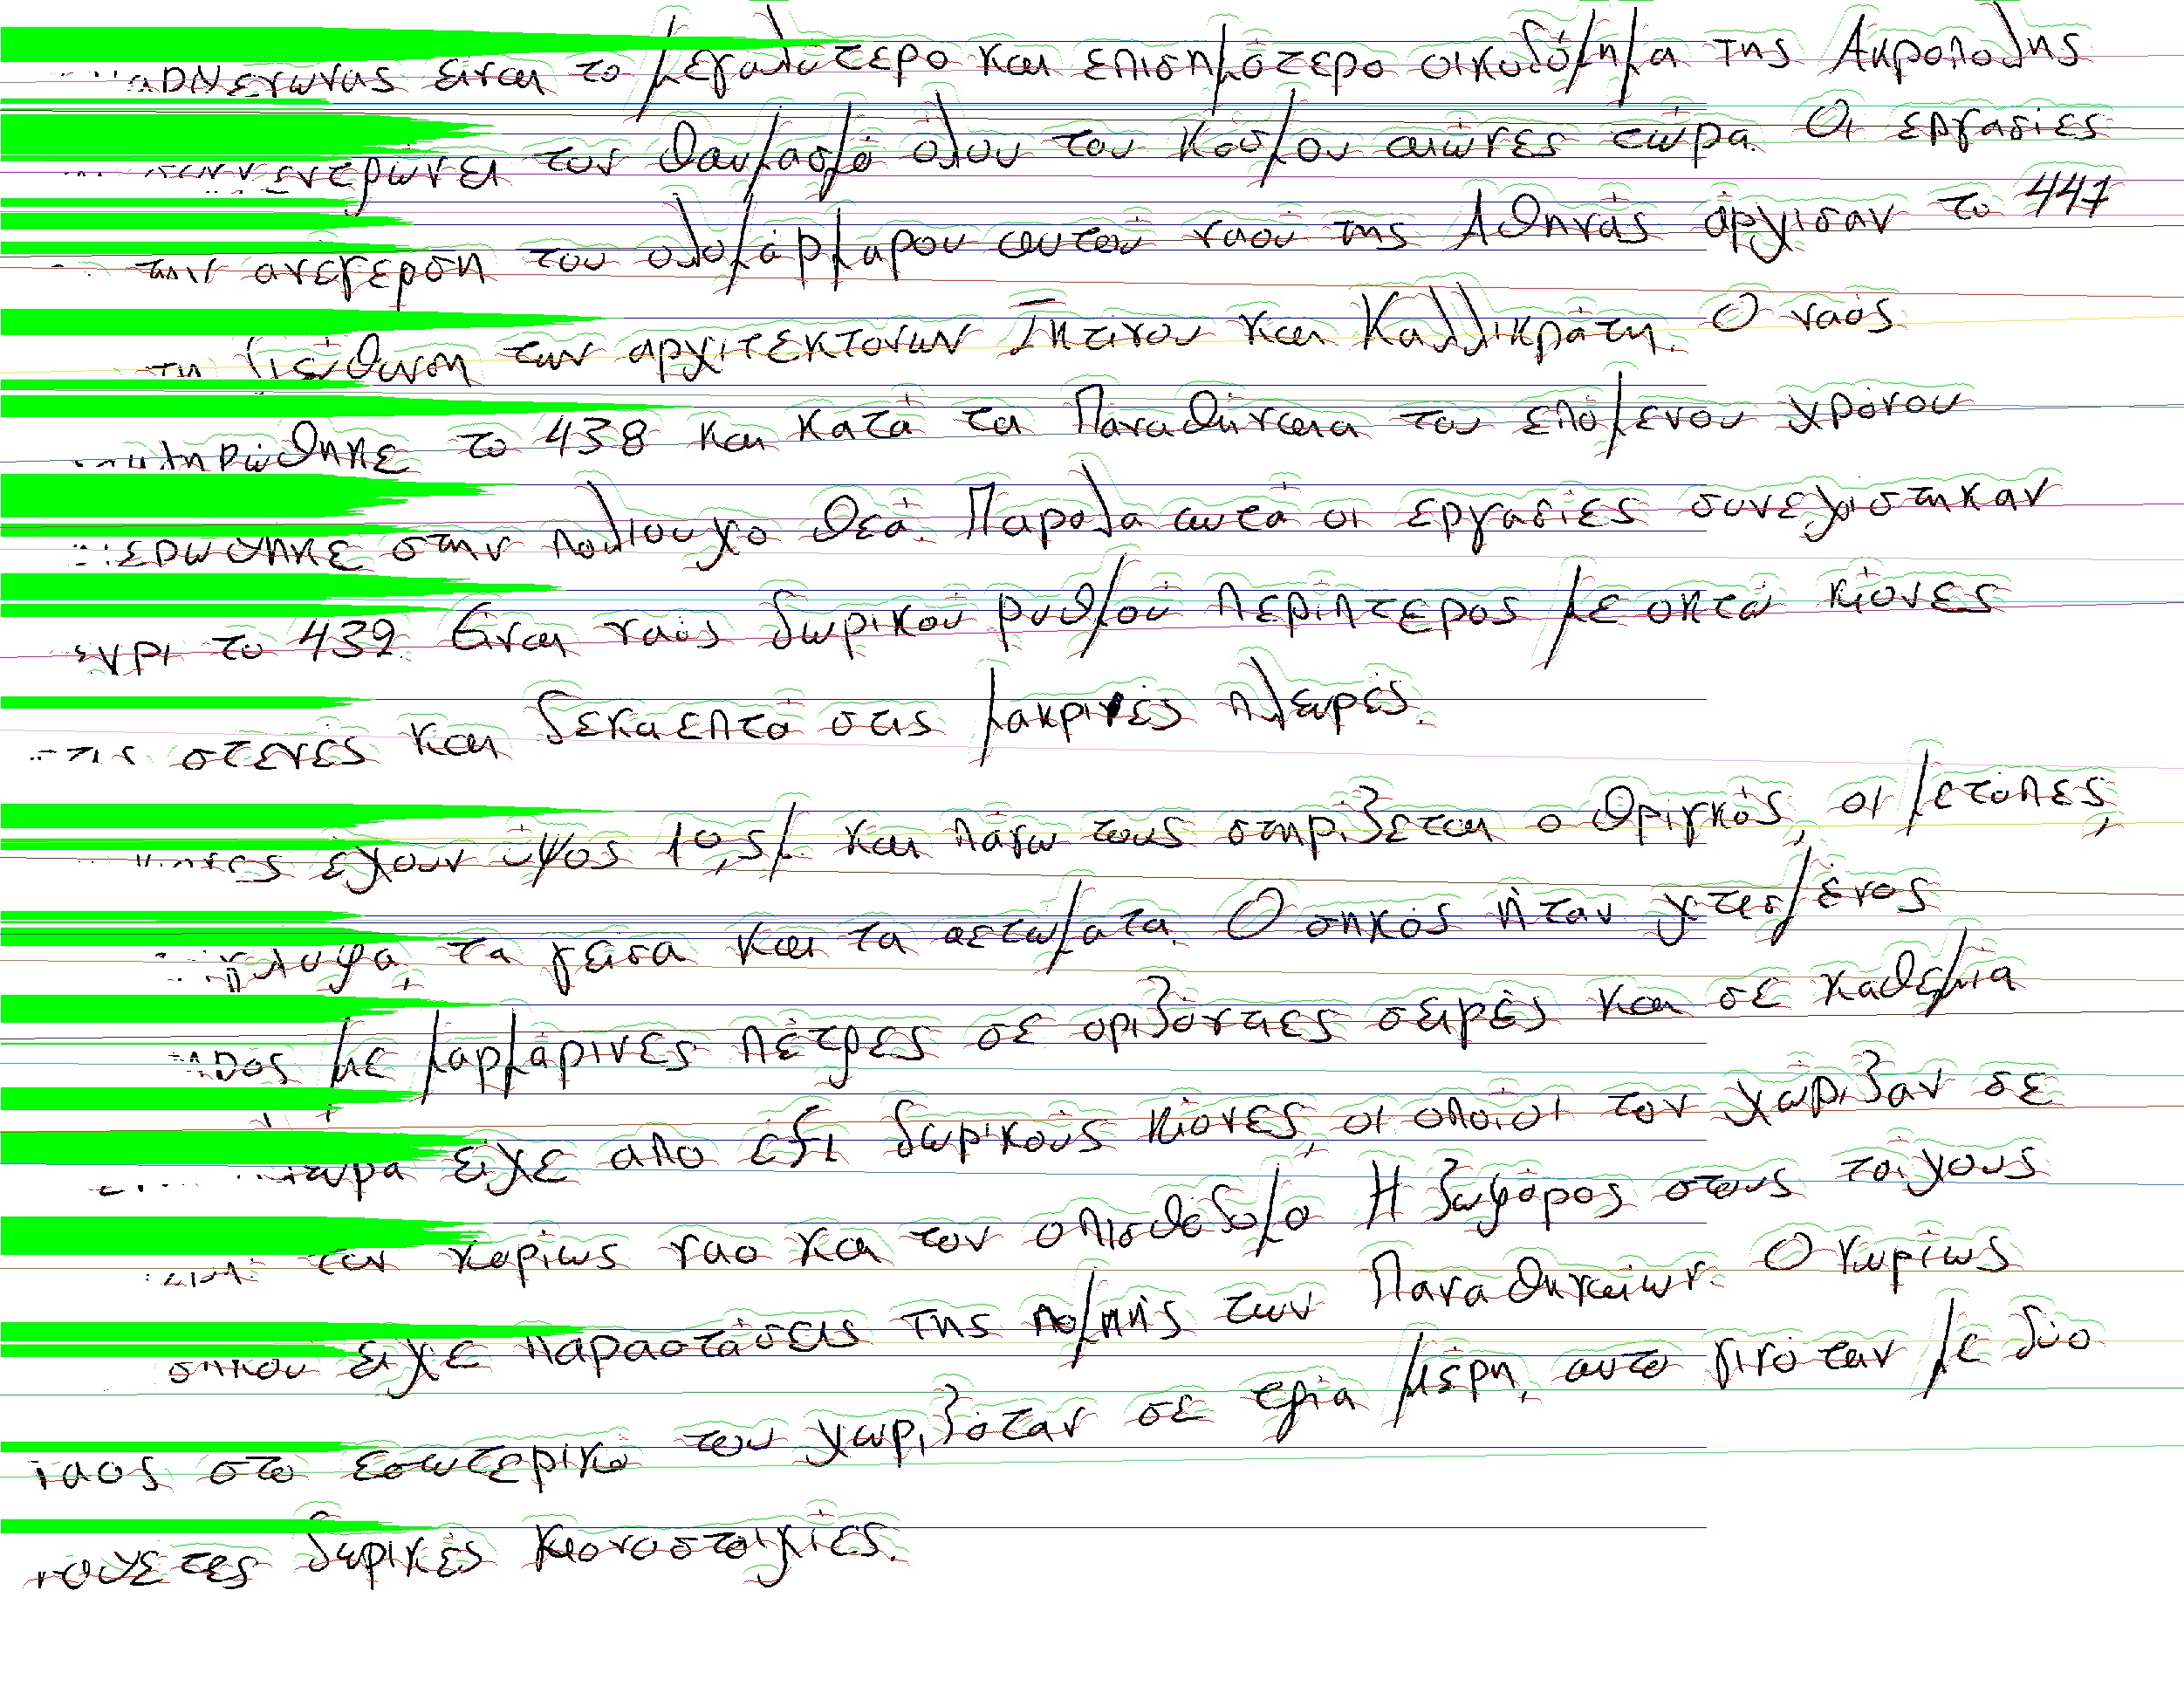 είναι το μεγαλύτερο και επισημότερο οικοδόμημα της Ακρόπολης
τον θαυμασμό όλου του κόσμου αιώνες τώρα. Οι εργασίες
την ανέγερση του ολομάρμαρου αυτού ναού της Αθηνάς άρχισαν το 447
διεύθυνση των αρχιτεκτόνων Ικτίνου και Καλλικράτη. Ο ναός
το 438 και κατά τα Παναθήναια του επόμενου χρόνου
στην πολιούχο θεά. Παρόλα αυτά οι εργασίες συνεχίστηκαν
το 432. Είναι ναός δωρικού ρυθμού περίπτερος με οκτώ κίονες
στενές και δεκαεπτά στις μακρινές πλευρές.
έχουν ύψος 10,5μ και πάνω τους στηρίζεται ο θριγκός, οι μετόπες,
τα γείσα και τα αετώματα. Ο σηκός ήταν χτισμένος
με μαρμάρινες πέτρες σε οριζόντιες σειρές και σε καθεμία
είχε από έξι δωρικούς κίονες, οι οποίοι τον χώριζαν σε
τον κυρίως ναο και τον οπισθόδομο Η ζωφόρος στους τοίχους
σηκού είχε παραστάσεις της πομπής των Παναθηναίων. Ο κυρίως
ναός στο εσωτερικό του χωριζόταν σε τρία μέρη, αυτο γινόταν με δύο
δωρικές κιονοστοιχίες.